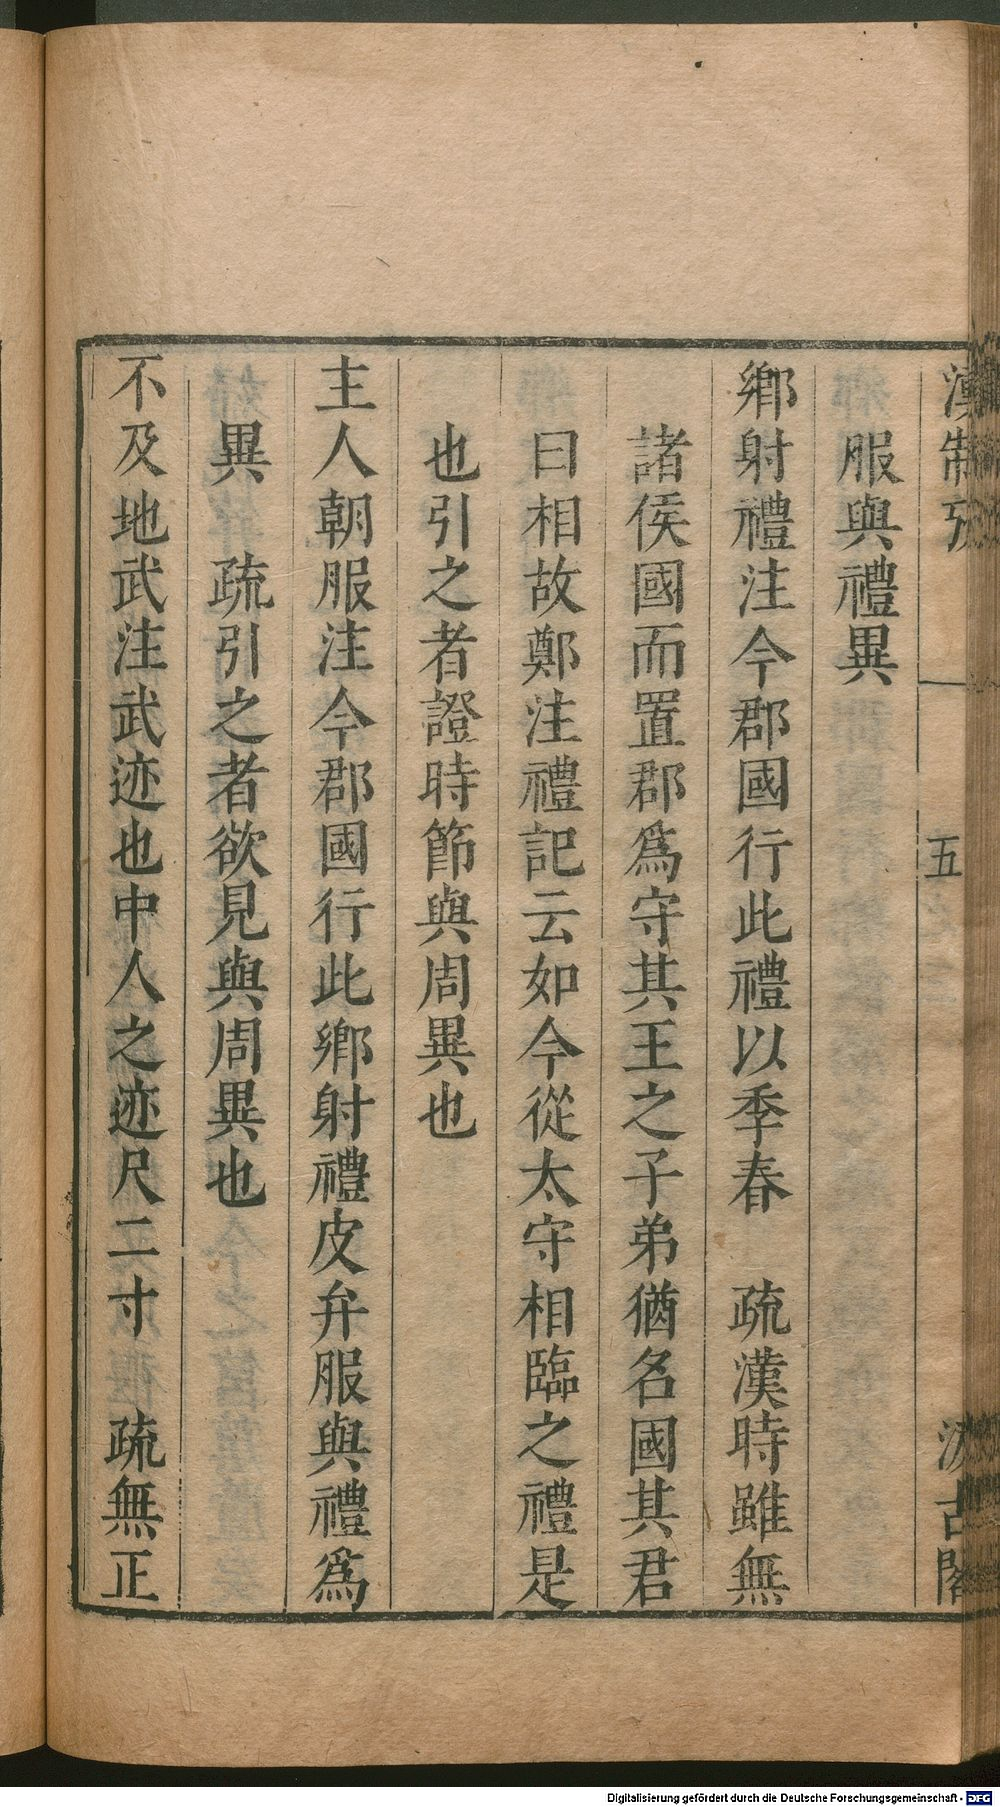 漢制攷
五
汲古閣
服與禮異
鄉射禮注今郡國行此禮以季春　疏漢時雖無
諸侯國而置郡爲守其王之子弟猶名國其君
曰相故鄭注禮記云如今從太守相臨之禮是
也引之者證時節與周異也
主人朝服注今郡國行此鄉射禮皮弁服與禮爲
異　疏引之者欲見與周異也
不及地武注武迹也中人之迹尺二寸　疏無正
Digitalisierung gefördert durch die Deutsche Forschungsgemeinschaft - DFG